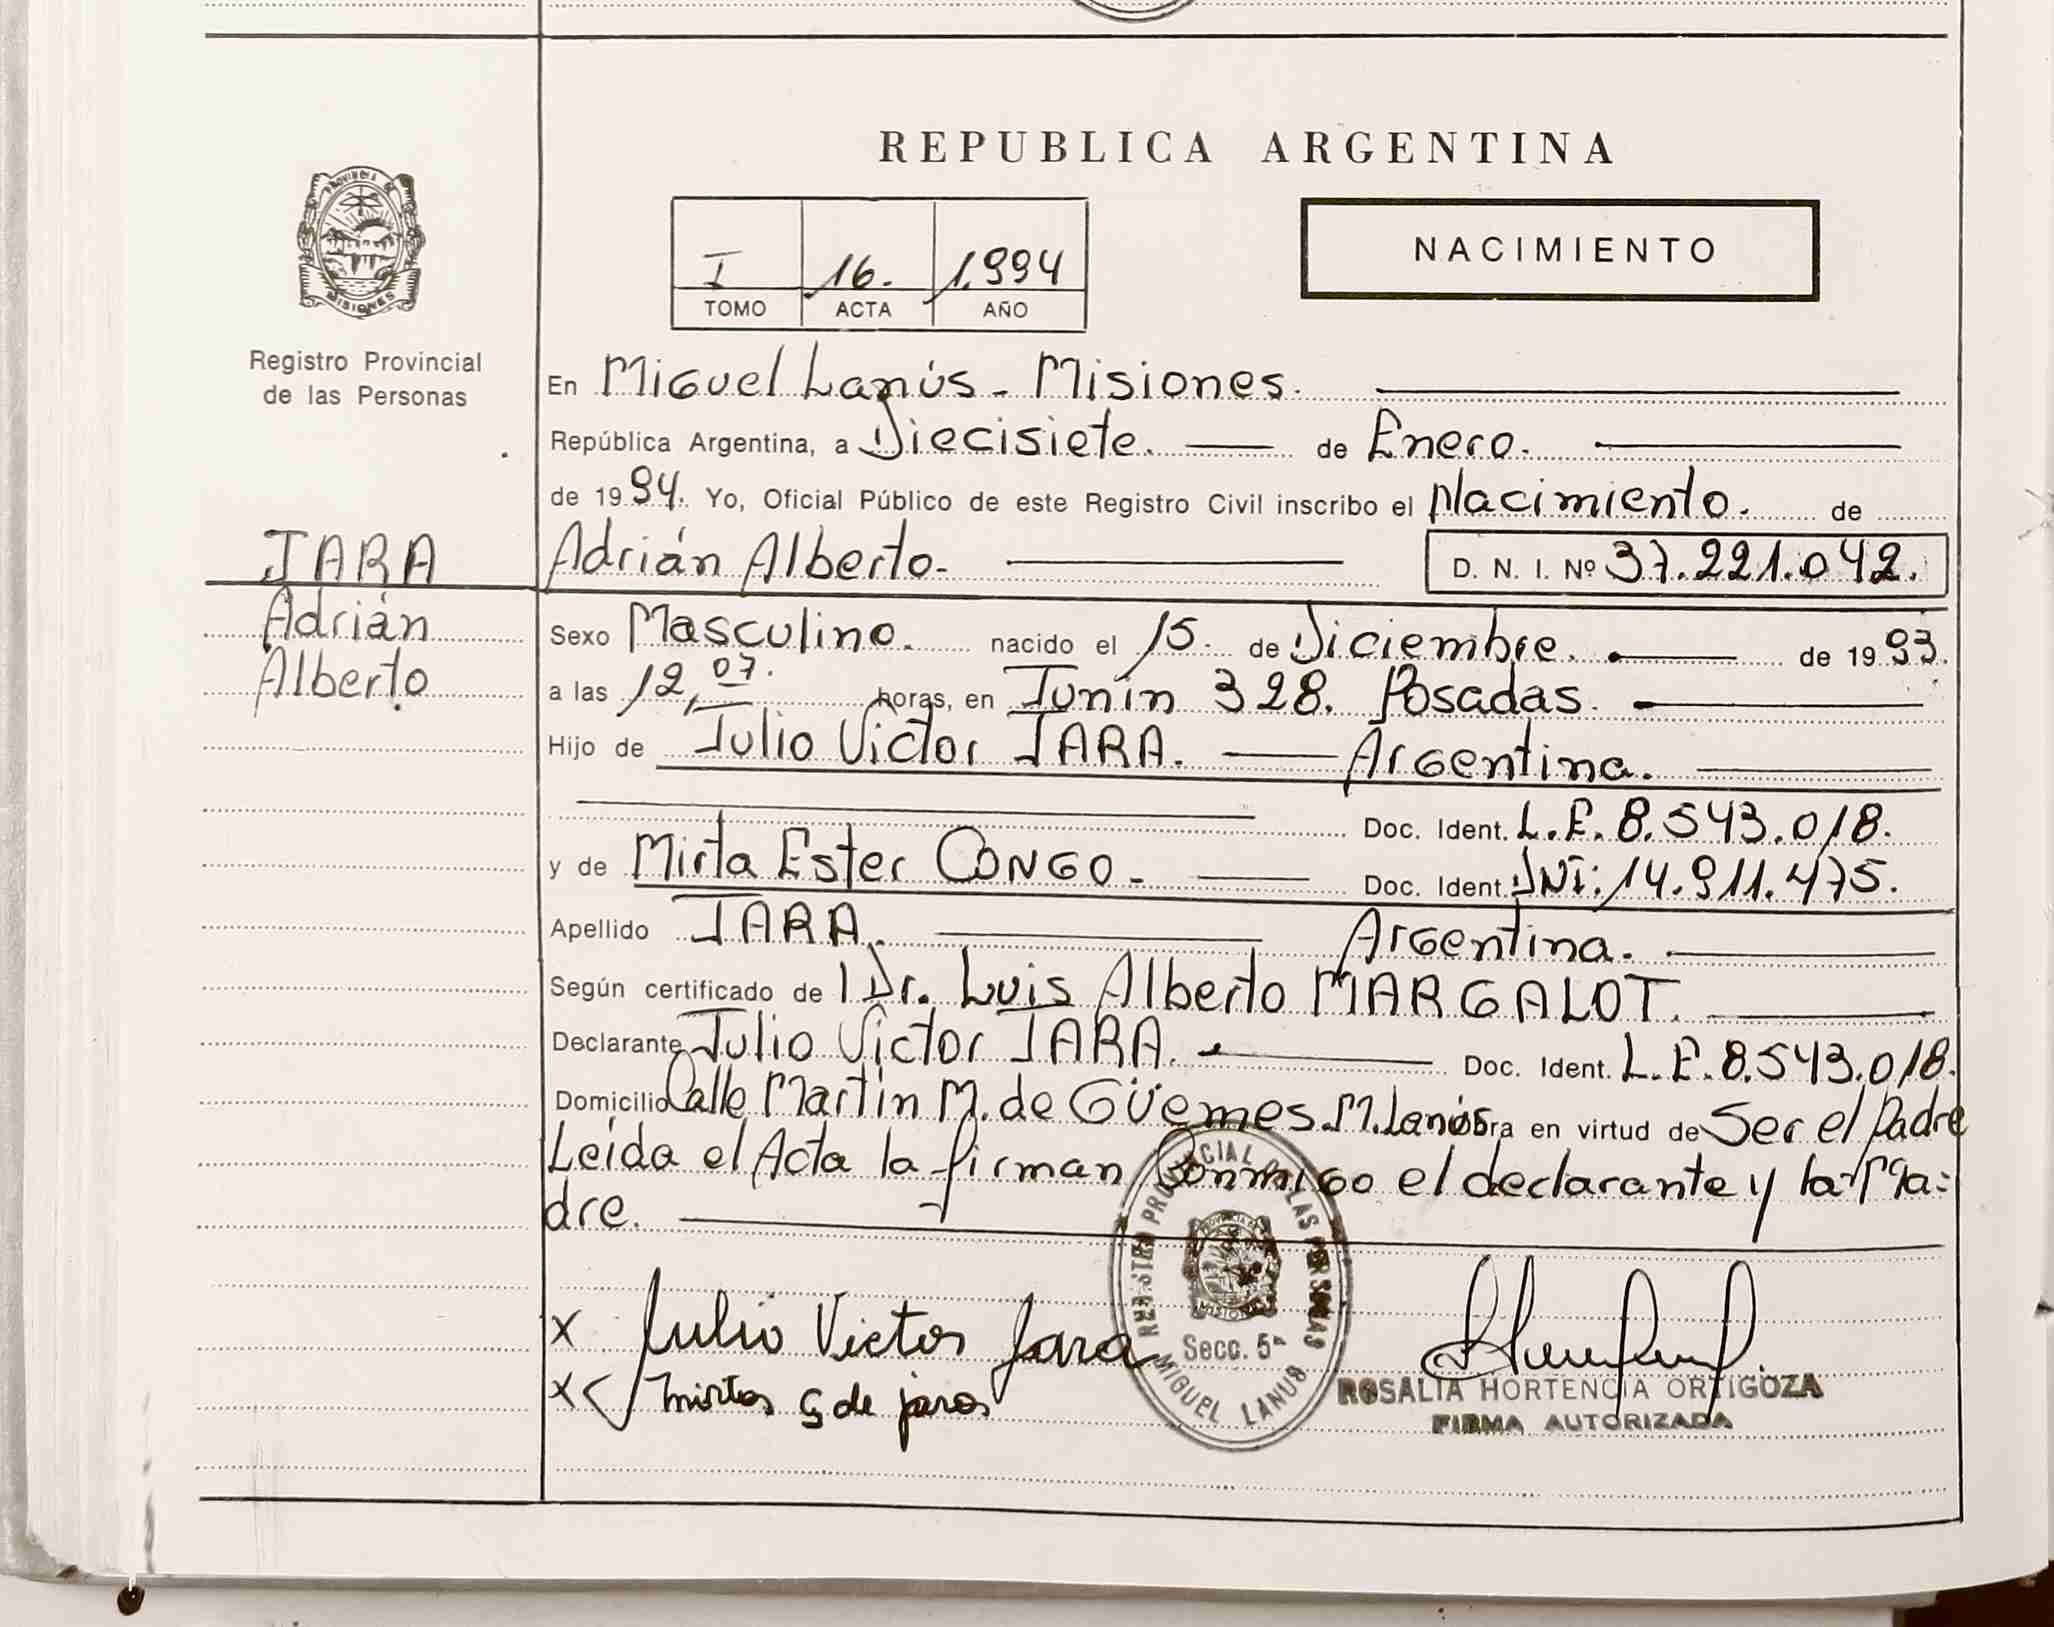 REPUBLICA ARGENTINA
PROVINCIA DE
MISIONES
Registro Provincial
de las Personas
NACIMIENTO
I 16. 1.994
TOMO ACTA AÑO
En Miguel Lanús - Misiones.
República Argentina, a Diecisiete. de Enero.
de 19 94. Yo, Oficial Público de este Registro Civil inscribo el Nacimiento. de
JARA
Adrián
Alberto
Adrián Alberto. D. N. I. Nº 37.221.042.
Sexo Masculino. nacido el 15. de Diciembre. de 19 93.
a las 12,07. horas, en Junín 328. Posadas.
Hijo de Julio Víctor JARA. Argentina.
Doc. Ident. L.E. 8.543.018.
y de Mirta Ester CONGO. Doc. Ident. DNI: 14.911.475.
Apellido JARA. Argentina.
Según certificado de Dr. Luis Alberto MARGALOT.
Declarante Julio Víctor JARA. Doc. Ident. L.E. 8.543.018.
Domicilio Calle Martín M. de Güemes. M. Lanús ra en virtud de Ser el Padre
Leída el Acta la firman Conmigo el declarante y la Ma=
dre.
REGISTRO PROVINCIAL DE LAS PERSONAS
MISIONES
Secc. 5ª
MIGUEL LANUS
X Julio Victor Jara
X mirta G de jara
ROSALIA HORTENCIA ORTIGOZA
FIRMA AUTORIZADA